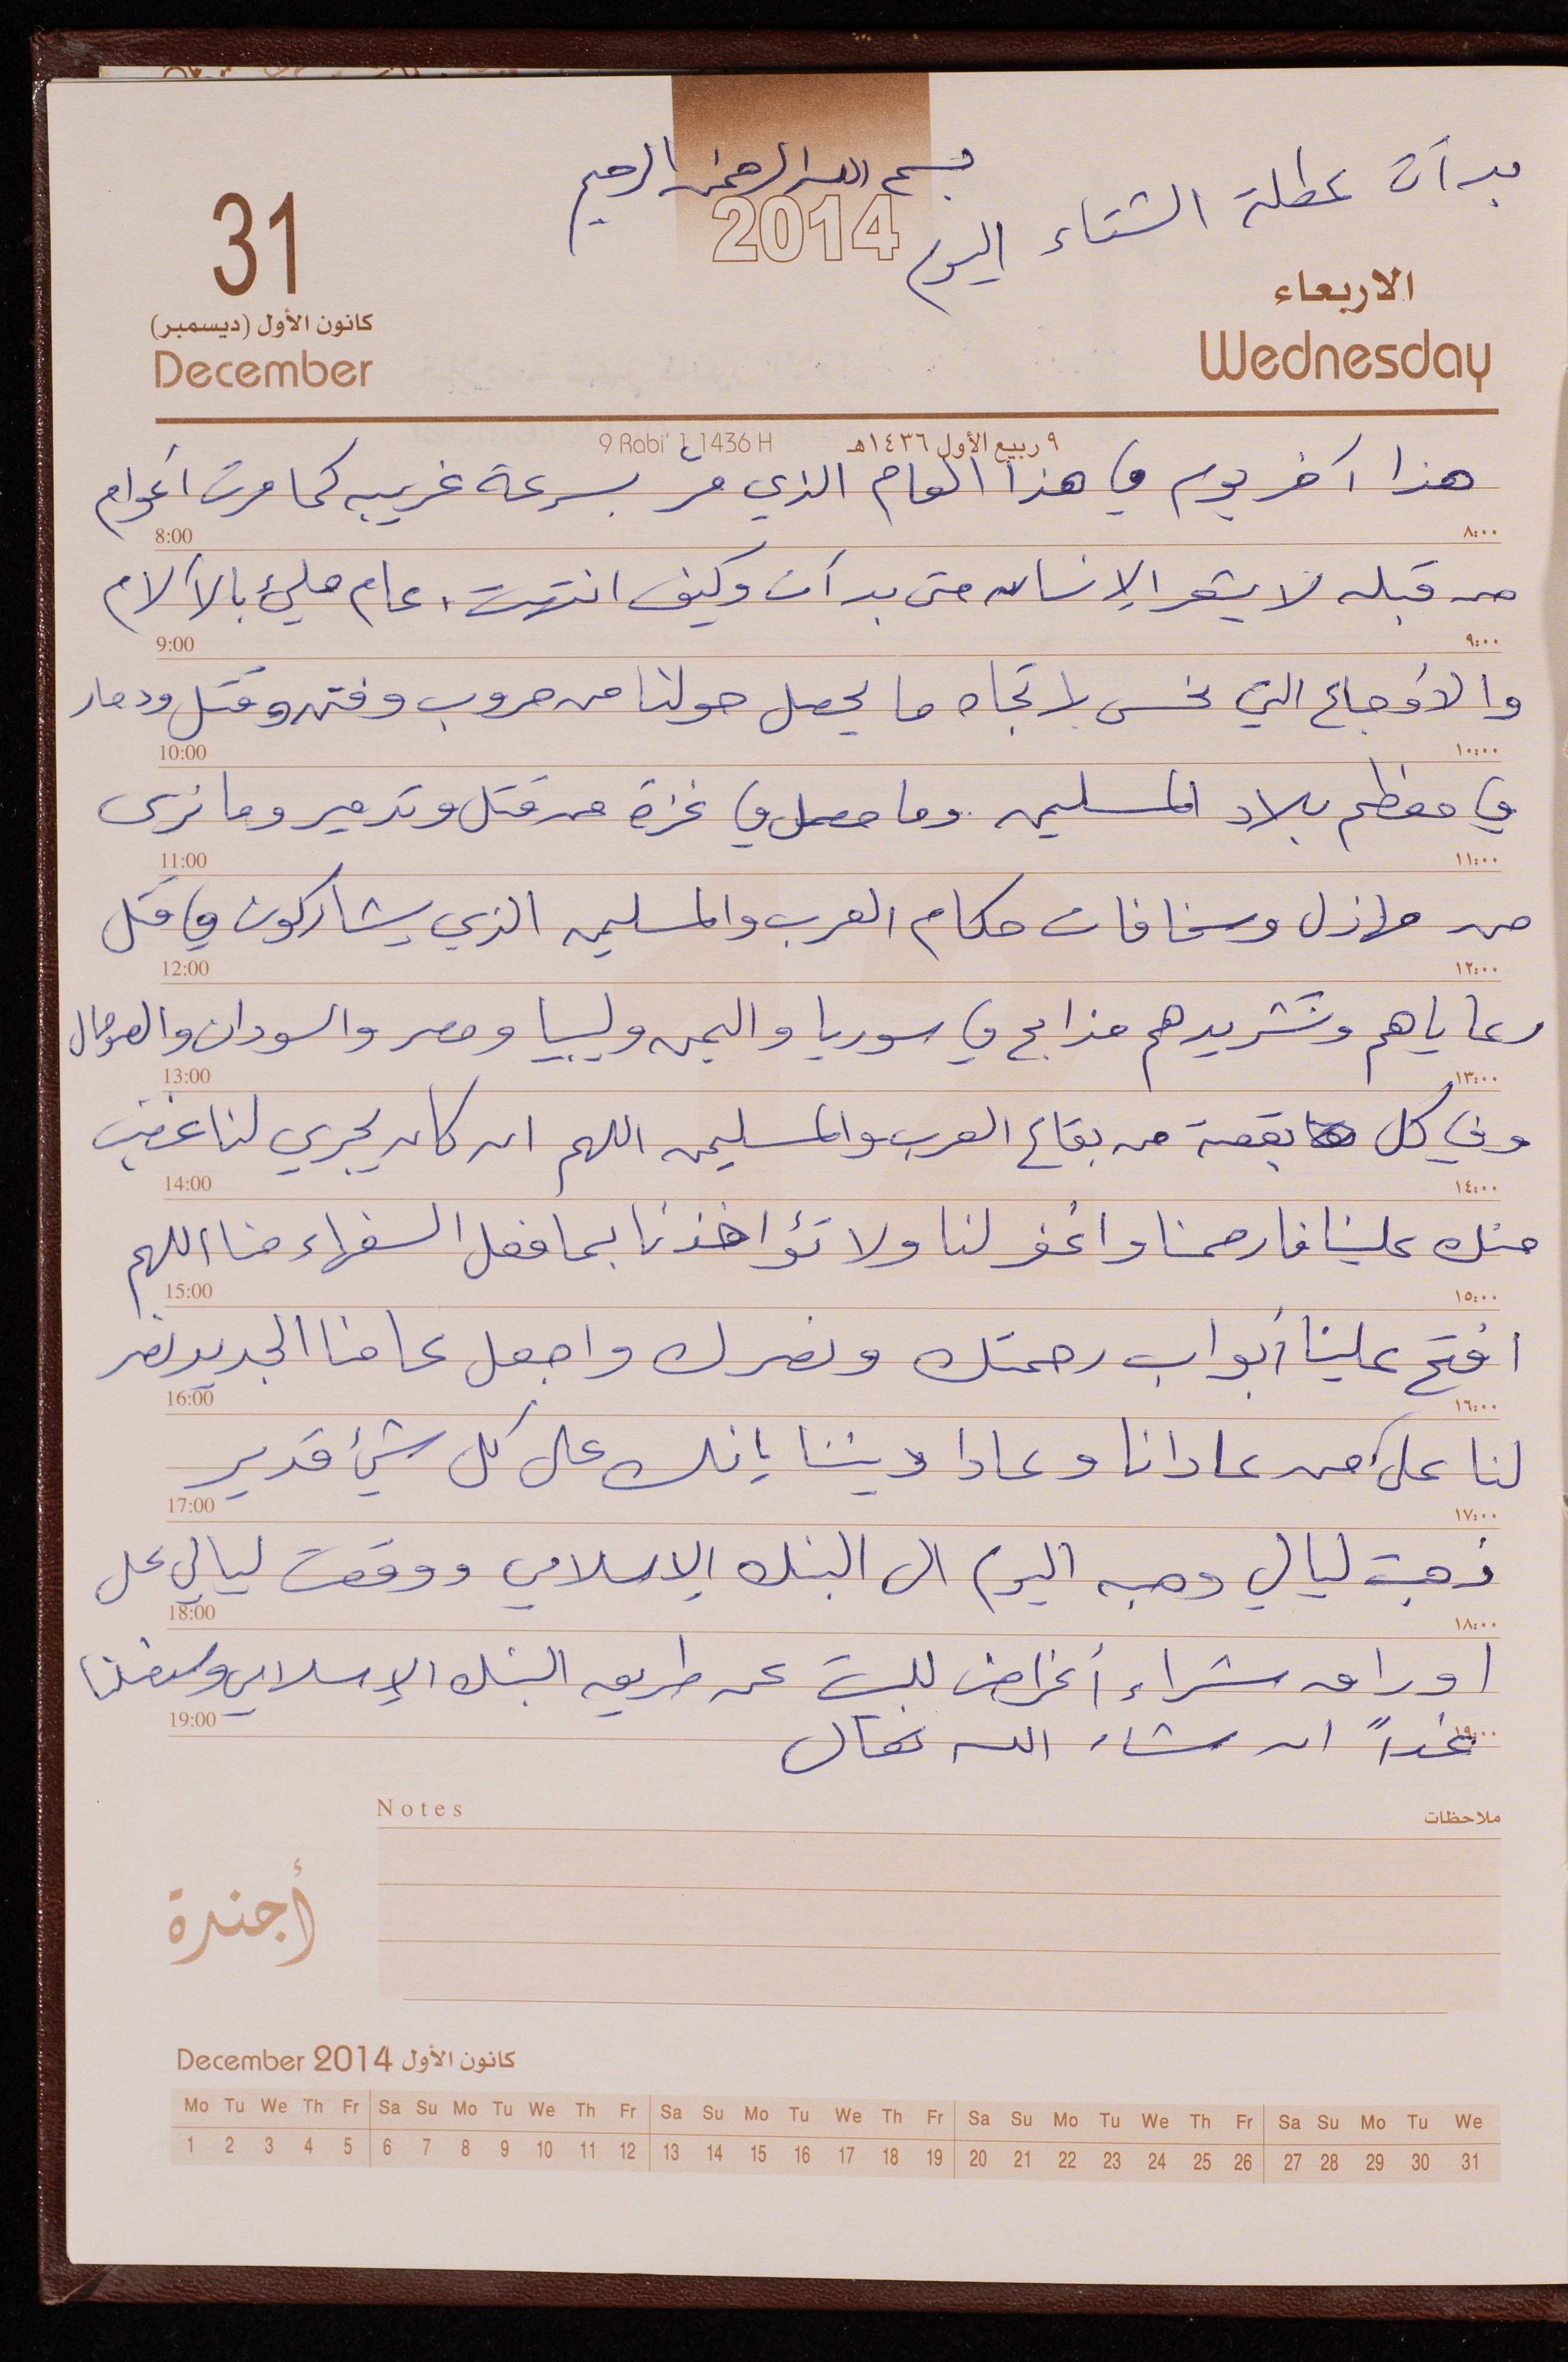 بسم الله الرحمن الرحيم
بدأت عطلة الشتاء اليوم
2014
31
كانون الأول (ديسمبر)
December
الاربعاء
Wednesday
9 Rabi' I, 1436 H
٩ ربيع الأول ١٤٣٦هـ
هذا آخر يوم في هذا العام الذي مرّ بسرعة غريبه كما مرت أعوام
8:00 ٨:٠٠
من قبله لا يشعر الإنسان متى بدأت وكيف انتهت، عام مليئ بالآلام
9:00 ٩:٠٠
والأوجاع التي نحس بها تجاه ما يحصل حولنا من حروب وفتن وقتل ودمار
10:00 ١٠:٠٠
في معظم بلاد المسلمين.. وما حصل في غزة من قتل وتدمير وما نرى
11:00 ١١:٠٠
من مهازل وسخافات حكام العرب والمسلمين الذي يشاركون في قتل
12:00 ١٢:٠٠
رعاياهم وتشريدهم مذابح في سوريا واليمن وليبيا ومصر والسودان والصومال
13:00 ١٣:٠٠
وفي كل بقعة من بقاع العرب والمسلمين اللهم ان كان يجري لنا غضب
14:00 ١٤:٠٠
منك علينا فارحمنا واغفر لنا ولا تؤاخذنا بما فعل السفهاء منا اللهم
15:00 ١٥:٠٠
افتح علينا أبواب رحمتك ونصرك واجعل عامنا الجديد نصر
16:00 ١٦:٠٠
لنا على من عادانا وعادا ديننا إنك على كل شيئ قدير
17:00 ١٧:٠٠
ذهبت ليالي وهبه اليوم الى البنك الإسلامي ووقعت ليالي على
18:00 ١٨:٠٠
اوراق شراء أغراض للبيت عن طريق البنك الإسلامي
19:00 ١٩:٠٠
غداً ان شاء الله تعالى
Notes ملاحظات
أجندة
December 2014 كانون الأول
Mo Tu We Th Fr Sa Su Mo Tu We Th Fr Sa Su Mo Tu We Th Fr Sa Su Mo Tu We Th Fr Sa Su Mo Tu We
1 2 3 4 5 6 7 8 9 10 11 12 13 14 15 16 17 18 19 20 21 22 23 24 25 26 27 28 29 30 31